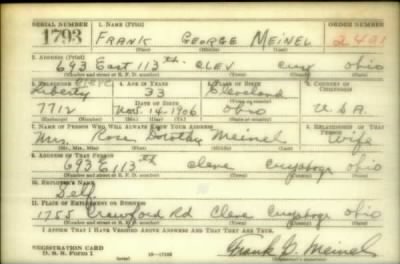 SERIAL NUMBER 1. NAME (Print) ORDER NUMBER
1793 FRANK GEORGE MEINEL 2421
(First) (Middle) (Last)
2. ADDRESS (Print)
693 East 113th CLEV Cuy Ohio
(Number and street or R. F. D. number) (Town) (County) (State)
3. TELEPHONE 4. AGE IN YEARS 5. PLACE OF BIRTH 6. COUNTRY OF CITIZENSHIP
Liberty 33 Cleveland
DATE OF BIRTH (Town or county)
7712 Nov. 14. 1906 Ohio U.S.A
(Exchange) (Number) (Mo.) (Day) (Yr.) (State or country)
7. NAME OF PERSON WHO WILL ALWAYS KNOW YOUR ADDRESS 8. RELATIONSHIP OF THAT PERSON
Mrs. Rose Dorothy Meinel Wife
(Mr., Mrs., Miss) (First) (Middle) (Last)
9. ADDRESS OF THAT PERSON
693 E 113th Cleve Cuyahoga Ohio
(Number and street or R. F. D. number) (Town) (County) (State)
10. EMPLOYER'S NAME
Self
11. PLACE OF EMPLOYMENT OR BUSINESS
1755 Crawford Rd Cleve Cuyahoga Ohio
(Number and street or R. F. D. number) (Town) (County) (State)
I AFFIRM THAT I HAVE VERIFIED ABOVE ANSWERS AND THAT THEY ARE TRUE.
REGISTRATION CARD Frank G. Meinel
D. S. S. Form 1 16—17105 (Registrant's signature)